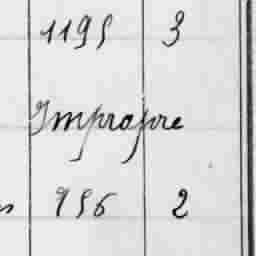 1195 3
Impropre
956 2